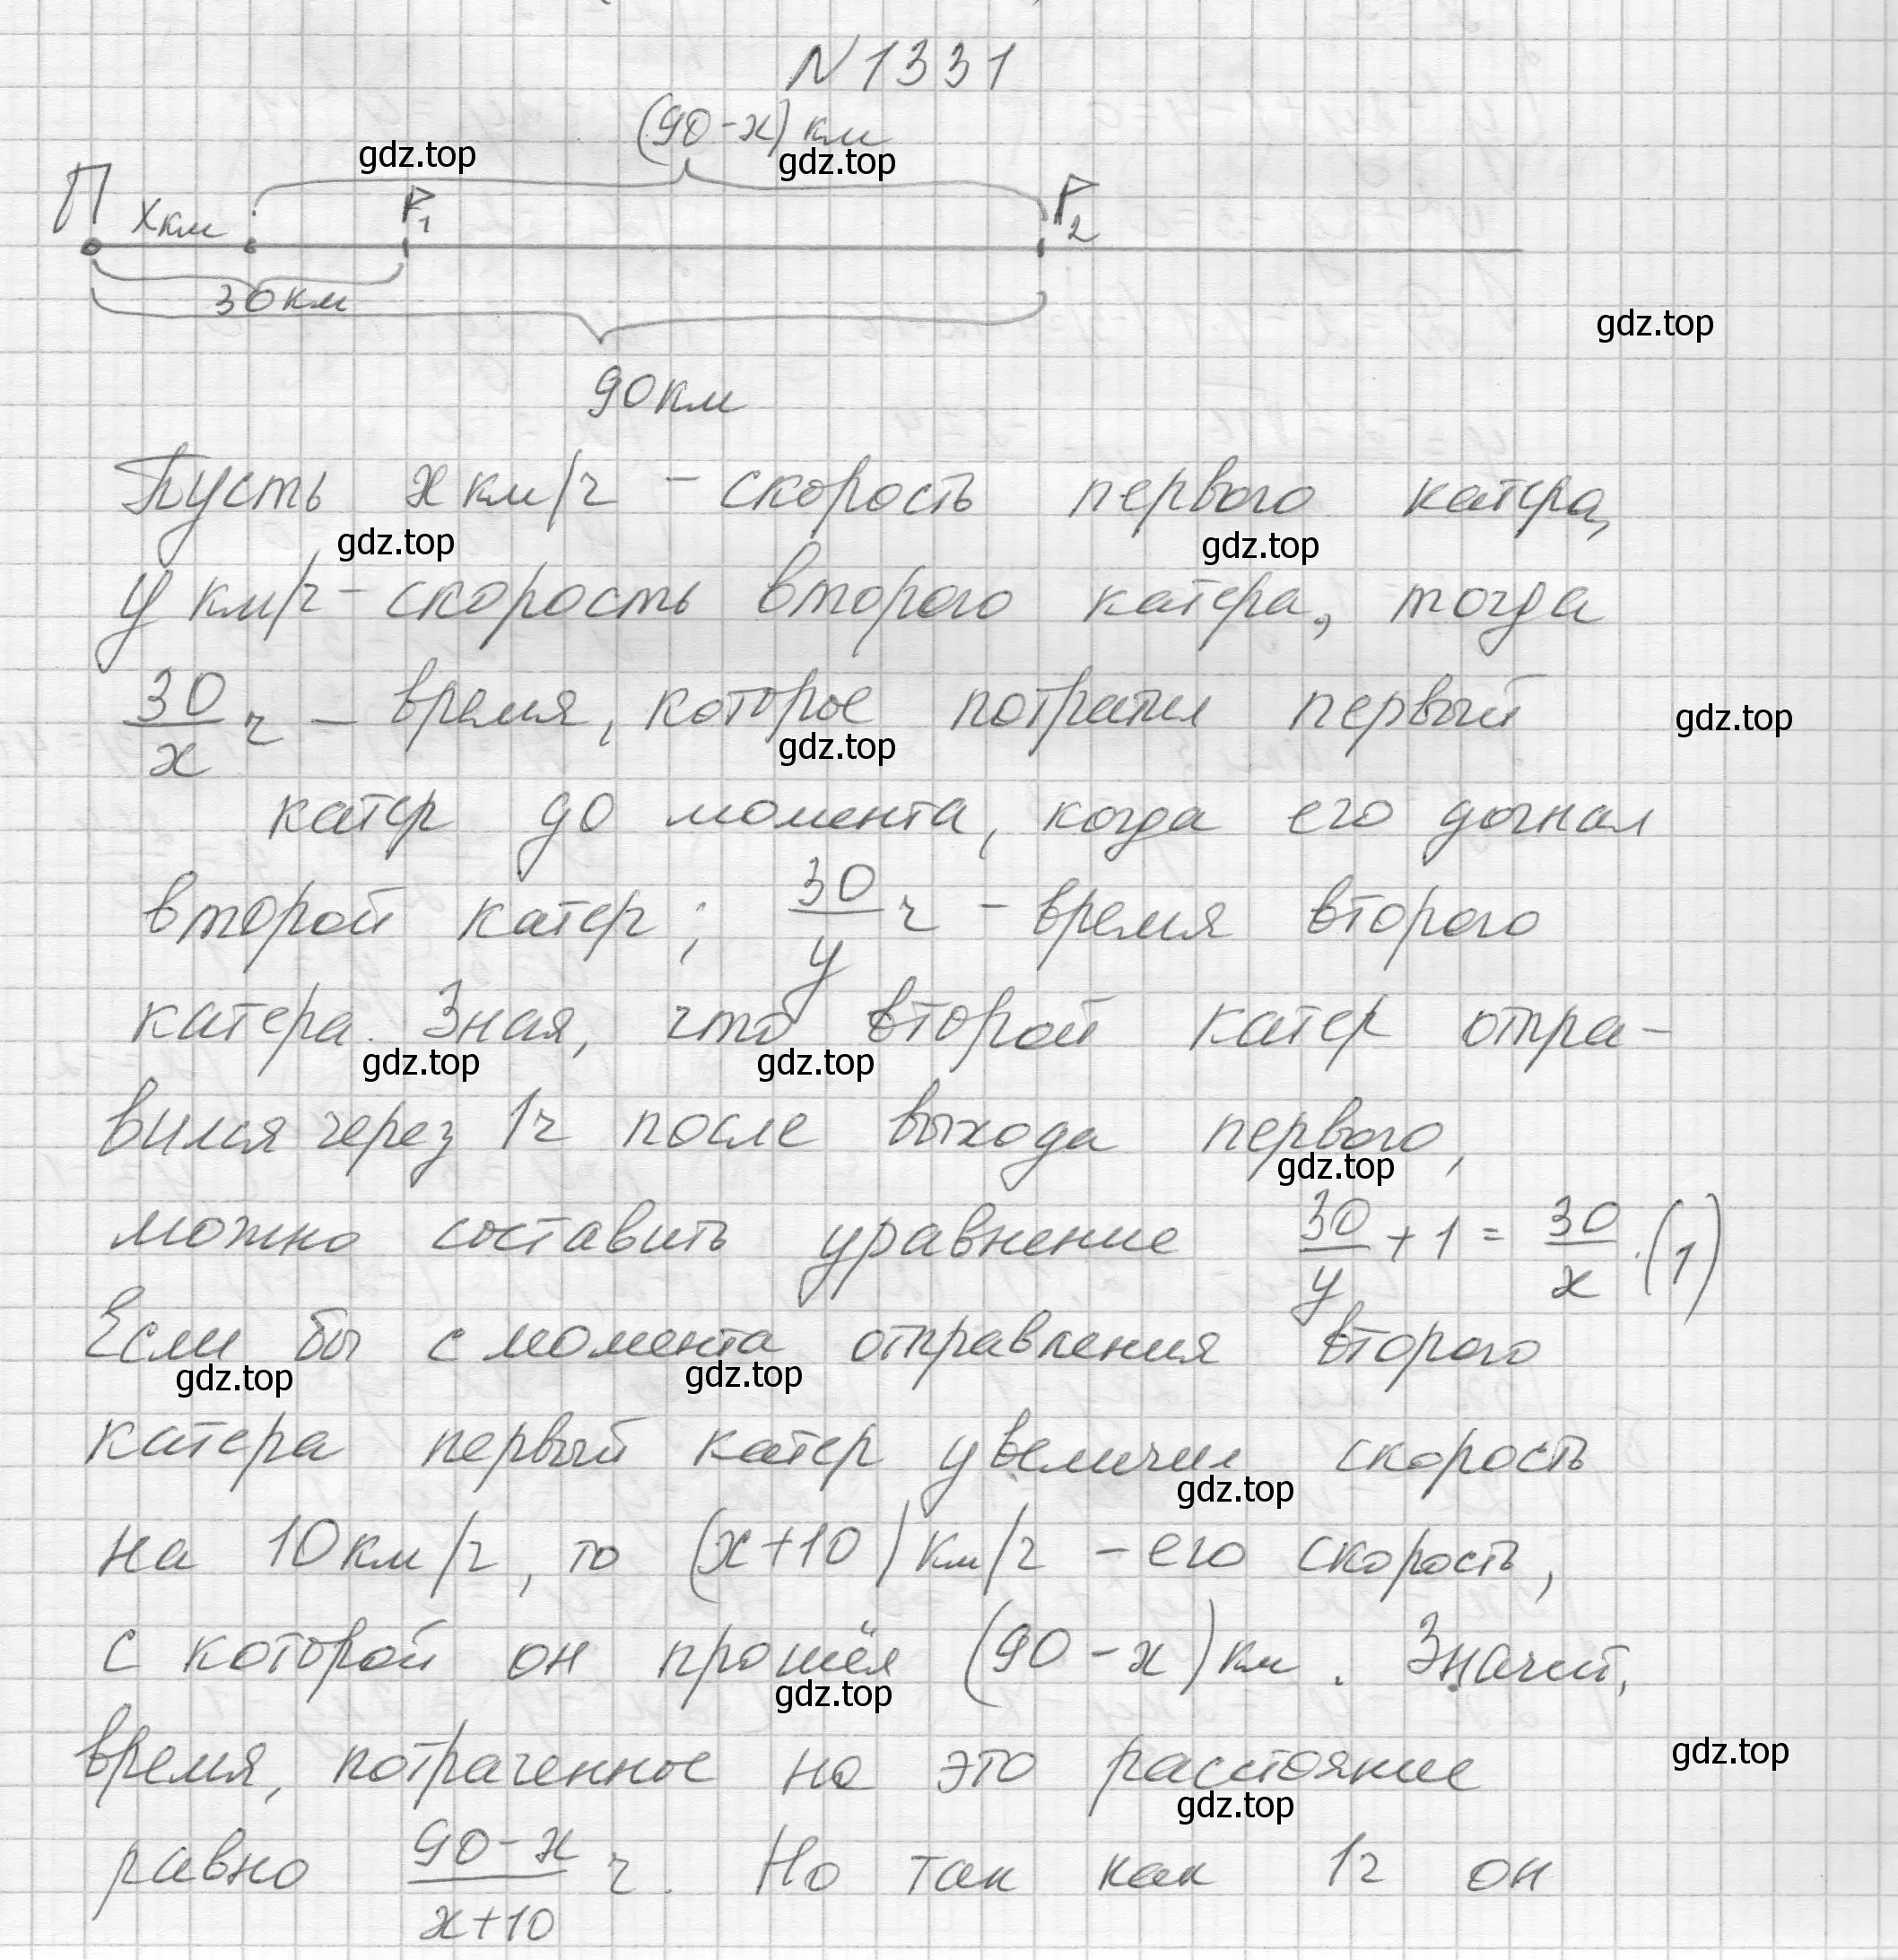 N 1331
(90-x) км
gdz.top
gdz.top
П
x км
P₁
P₂
30 км
gdz.top
90 км
Пусть x км/ч - скорость первого катера,
gdz.top
gdz.top
y км/ч - скорость второго катера, тогда
30/x ч - время, которое потратил первый
gdz.top
gdz.top
катер до момента, когда его догнал
второй катер; 30/y ч - время второго
катера. Зная, что второй катер отпра-
gdz.top
gdz.top
вился через 1ч после выхода первого,
gdz.top
можно составить уравнение 30/y + 1 = 30/x. (1)
Если бы с момента отправления второго
gdz.top
gdz.top
катера первый катер увеличил скорость
gdz.top
на 10 км/ч, то (x+10) км/ч - его скорость,
с которой он прошёл (90-x) км. Значит,
gdz.top
время, потраченное на это расстояние
gdz.top
gdz.top
равно (90-x)/(x+10) ч. Но так как 1ч он